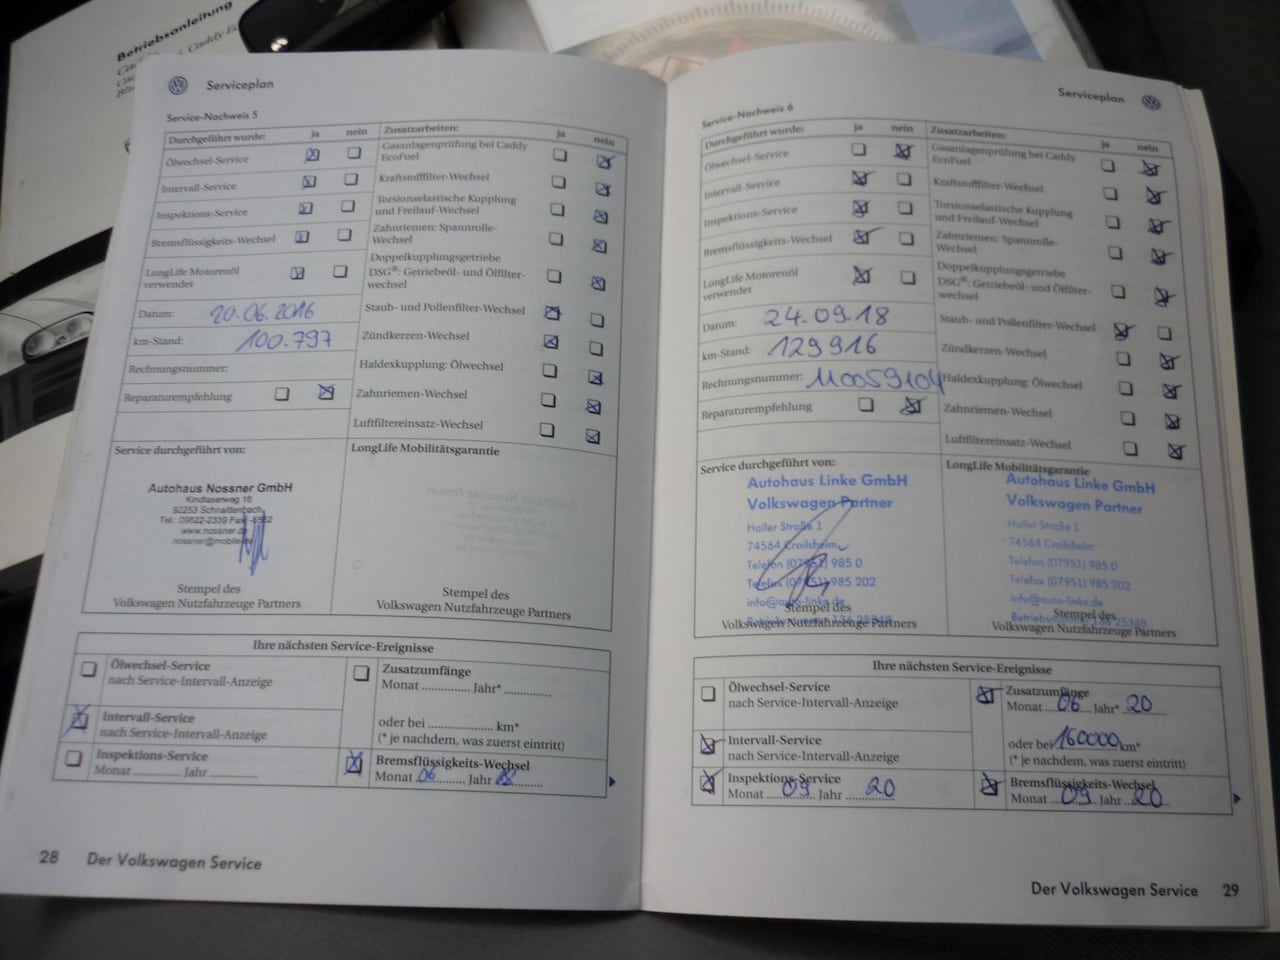 Betriebsanleitung
Serviceplan
Service-Nachweis 5
Durchgeführt wurde: ja nein Zusatzarbeiten: ja nein
Ölwechsel-Service
Intervall-Service
Inspektions-Service
Bremsflüssigkeits-Wechsel
LongLife Motorenöl
verwendet
Datum: 20.06.2016
km-Stand: 100.797
Rechnungsnummer:
Reparaturempfehlung
Gasanlagenprüfung bei Caddy
EcoFuel
Kraftstofffilter-Wechsel
Torsionselastische Kupplung
und Freilauf-Wechsel
Zahnriemen: Spannrolle-
Wechsel
Doppelkupplungsgetriebe
DSG®: Getriebeöl- und Ölfilter-
wechsel
Staub- und Pollenfilter-Wechsel
Zündkerzen-Wechsel
Haldexkupplung: Ölwechsel
Zahnriemen-Wechsel
Luftfiltereinsatz-Wechsel
Service durchgeführt von:
Autohaus Nossner GmbH
Kindlaserweg 16
92253 Schnaittenbach
Tel.: 09622-2339 Fax: -5552
www.nossner.de
nossner@mobile.de
Stempel des
Volkswagen Nutzfahrzeuge Partners
LongLife Mobilitätsgarantie
Stempel des
Volkswagen Nutzfahrzeuge Partners
Ihre nächsten Service-Ereignisse
Ölwechsel-Service
nach Service-Intervall-Anzeige
Intervall-Service
nach Service-Intervall-Anzeige
Inspektions-Service
Monat ............ Jahr ............
Zusatzumfänge
Monat ............. Jahr* ............
oder bei ................ km*
(* je nachdem, was zuerst eintritt)
Bremsflüssigkeits-Wechsel
Monat 06 Jahr 18
28 Der Volkswagen Service
Serviceplan
Service-Nachweis 6
Durchgeführt wurde: ja nein Zusatzarbeiten: ja nein
Ölwechsel-Service
Intervall-Service
Inspektions-Service
Bremsflüssigkeits-Wechsel
LongLife Motorenöl
verwendet
Datum: 24.09.18
km-Stand: 129916
Rechnungsnummer: 110059104
Reparaturempfehlung
Gasanlagenprüfung bei Caddy
EcoFuel
Kraftstofffilter-Wechsel
Torsionselastische Kupplung
und Freilauf-Wechsel
Zahnriemen: Spannrolle-
Wechsel
Doppelkupplungsgetriebe
DSG®: Getriebeöl- und Ölfilter-
wechsel
Staub- und Pollenfilter-Wechsel
Zündkerzen-Wechsel
Haldexkupplung: Ölwechsel
Zahnriemen-Wechsel
Luftfiltereinsatz-Wechsel
Service durchgeführt von:
Autohaus Linke GmbH
Volkswagen Partner
Haller Straße 1
74564 Crailsheim
Telefon (07951) 985 0
Telefax (07951) 985 202
info@auto-linke.de
Stempel des
Volkswagen Nutzfahrzeuge Partners
LongLife Mobilitätsgarantie
Autohaus Linke GmbH
Volkswagen Partner
Haller Straße 1
74564 Crailsheim
Telefon (07951) 985 0
Telefax (07951) 985 202
info@auto-linke.de
Stempel des
Volkswagen Nutzfahrzeuge Partners
Ihre nächsten Service-Ereignisse
Ölwechsel-Service
nach Service-Intervall-Anzeige
Intervall-Service
nach Service-Intervall-Anzeige
Inspektions-Service
Monat 09 Jahr 20
Zusatzumfänge
Monat 06 Jahr* 20
oder bei 160000 km*
(* je nachdem, was zuerst eintritt)
Bremsflüssigkeits-Wechsel
Monat 09 Jahr 20
Der Volkswagen Service 29